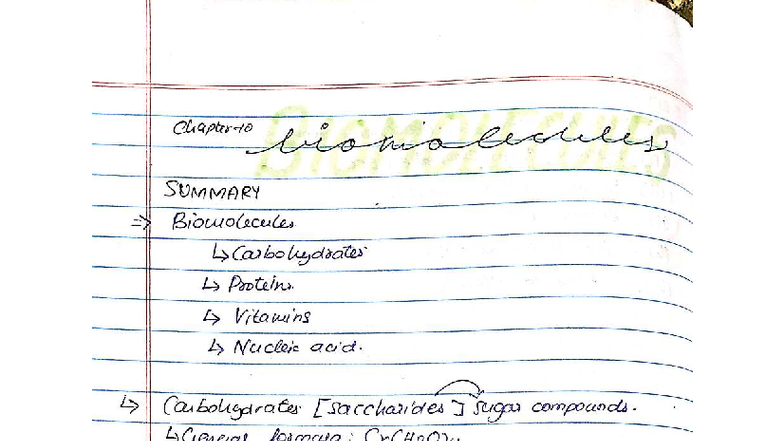 Chapter-10 biomolecules
SUMMARY
⇒ Biomolecules
↳ Carbohydrates
↳ Proteins
↳ Vitamins
↳ Nucleic acid.
↳ Carbohydrates [saccharides] sugar compounds.
↳ General formula: Cx(H2O)y.